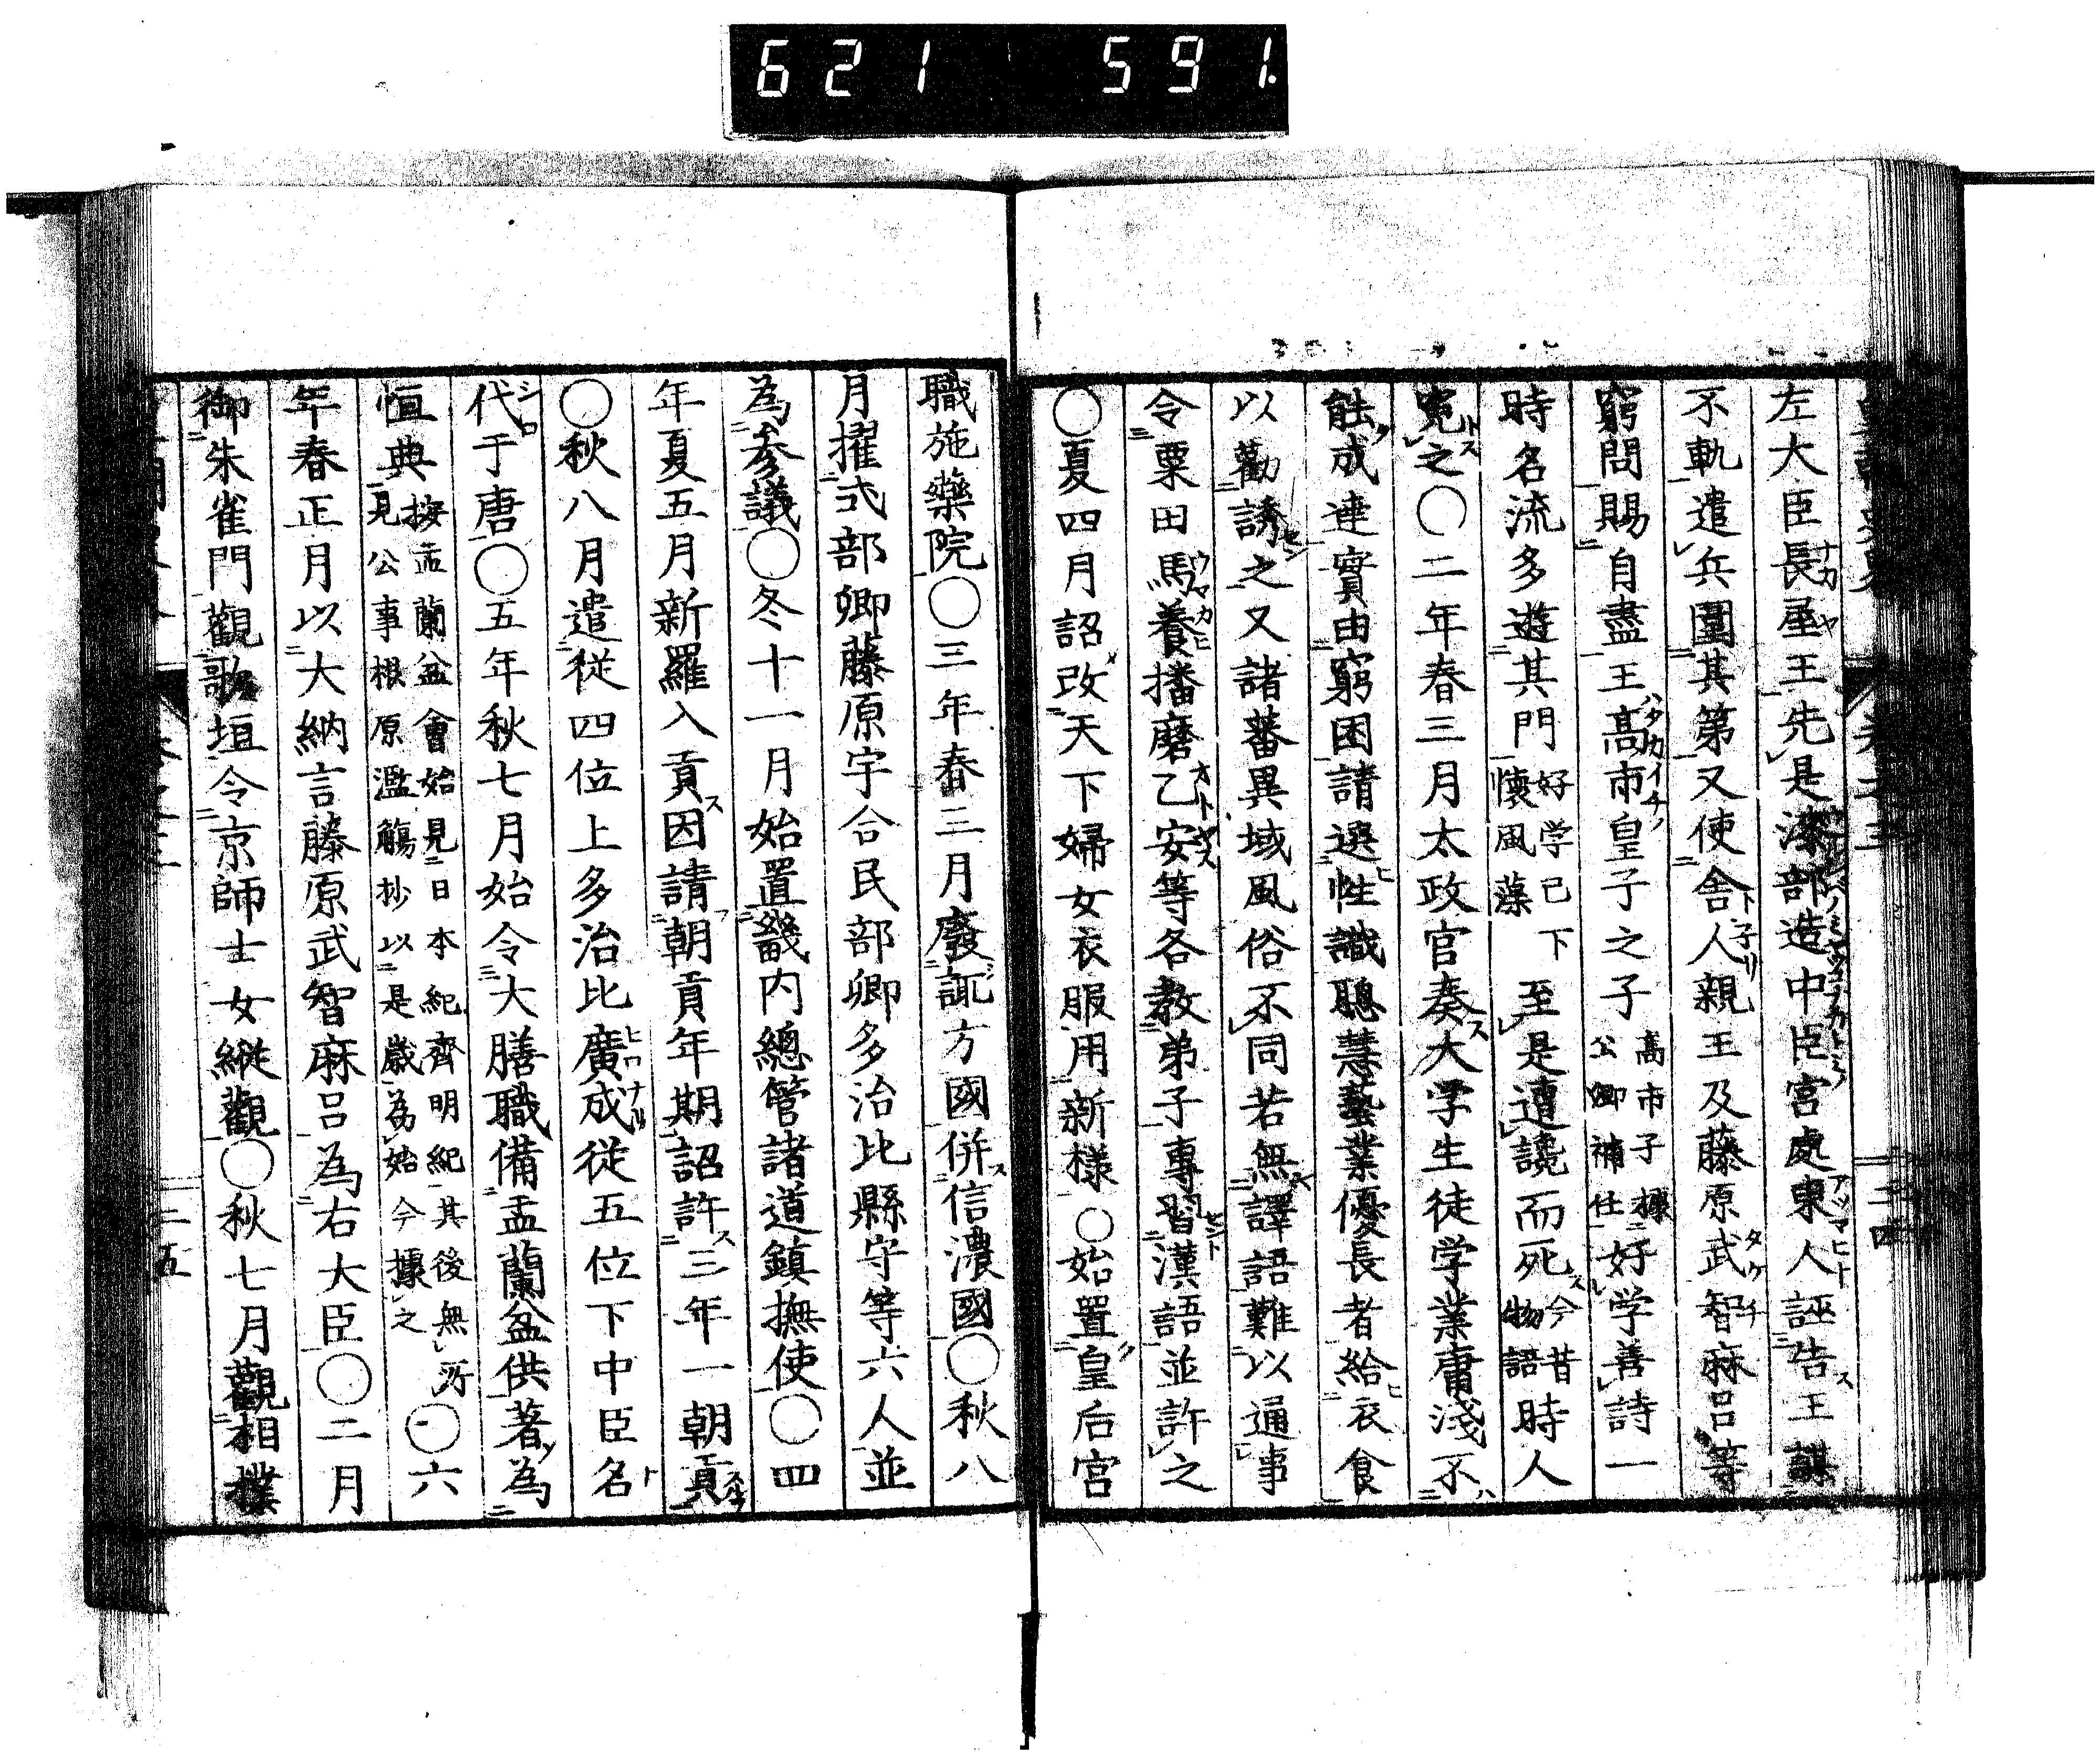 621 591
左大臣長屋王先是漆部造中臣宮處東人誣告王謀
不軌遣兵圍其第又使舍人親王及藤原武智麻呂等
窮問賜自盡王高市皇子之子高市子據公卿補任好学善詩一
時名流多遊其門好学已下懷風藻至是遭讒而死今昔物語時人
寃之〇二年春三月太政官奏大学生徒学業庸淺不
能成達實由窮困請選性識聰慧藝業優長者給衣食
以勸誘之又諸蕃異域風俗不同若無譯語難以通事
令粟田馬養播磨乙安等各教弟子專習漢語並許之
〇夏四月詔改天下婦女衣服用新樣〇始置皇后宮
職施藥院〇三年春三月廢諏方國併信濃國〇秋八
月擢式部卿藤原宇合民部卿多治比縣守等六人並
為參議〇冬十一月始置畿内總管諸道鎮撫使〇四
年夏五月新羅入貢因請朝貢年期詔許三年一朝貢
〇秋八月遣從四位上多治比廣成從五位下中臣名
代于唐〇五年秋七月始令大膳職備盂蘭盆供著為
恒典按盂蘭盆會始見日本紀齊明紀其後無所見公事根原濫觴抄以是歲為始今據之〇六
年春正月以大納言藤原武智麻呂為右大臣〇二月
御朱雀門觀歌垣令京師士女縱觀〇秋七月觀相撲
二五